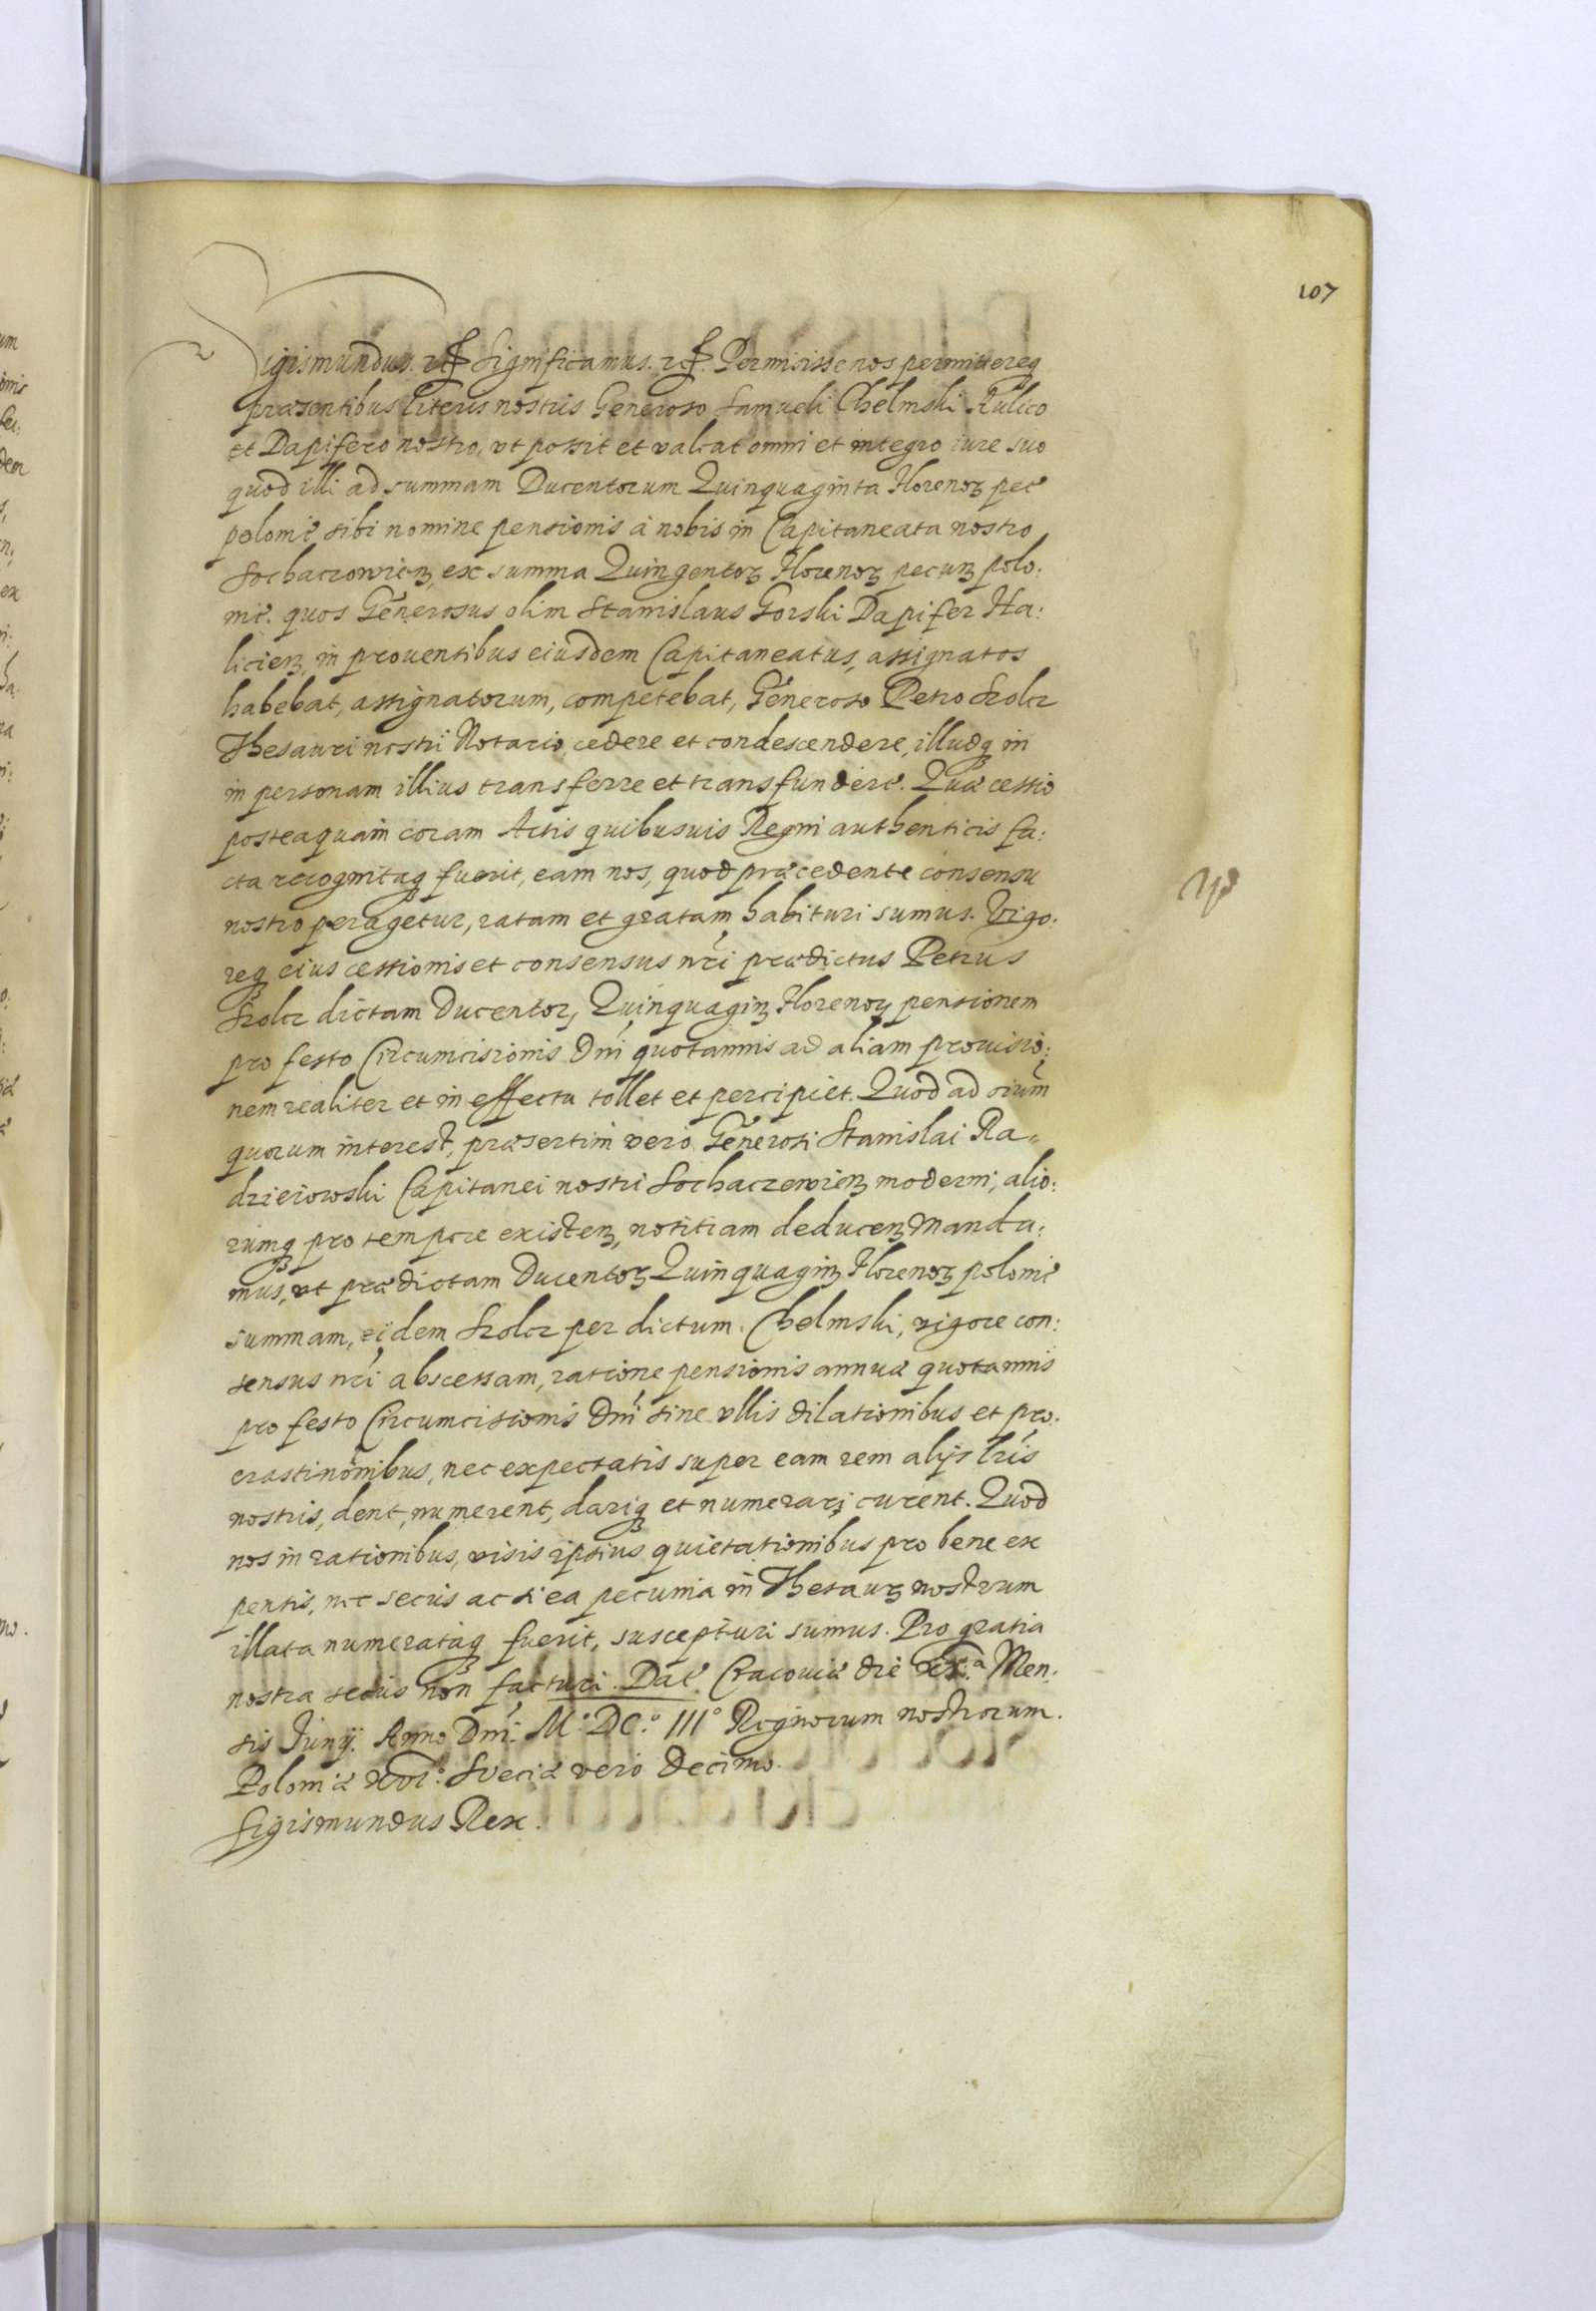 107
Sigismundus. etc. Significamus. etc. Permisisse nos permittereq
præsentibus literis nostris Generoso Samueli Chelmski Aulico
et Dapifero nostro, vt possit et valeat omni et integro iure suo
quod illi ad summam Ducentorum Quinquaginta Florenoꝝ pec
poloniẽ sibi nomine pensionis à nobis in Capitaneata nostro
Sochaczowieñ, ex summa Quingentoꝝ Florenoꝝ pecuñ polo:
niẽ. quos Generosus olim Stanislaus Gorski Dapifer Ha:
licieñ, in prouentibus eiusdem Capitaneatus, assignatos
habebat, assignatorum, competebat, Generoso Petro Szolcz
Thesauri nostri Notario, cedere et condescendere, illudq in
in personam illius transferre et transfundere. Quæ cessio
posteaquam coram Actis quibusuis Regni authenticis fa:
cta recognitaq fuerit, eam nos, quod præcedente consensu
nostro peragetur, ratam et gratam habituri sumus. Vigo:
req eius cessionis et consensus nri prædictus Petrus
Szolcz dictam Ducentoꝝ, Quinquagiñ Florenoꝝ pensionem
pro festo Circumcisionis Dni quotannis ad aliam prouisio:
nem realiter et in effectu tollet et percipiet. Quod ad oium
quorum interest, præsertim vero Generosi Stanislai Ra=
dzieiowski Capitanei nostri Sochaczewieñ moderni, alio:
rumq pro tempore existeñ, notitiam deduceñ Manda:
mus, vt prædictam Ducentoꝝ Quinquagiñ Florenoꝝ poloniẽ
summam, eidem Szolcz per dictum. Chelmski, vigore con:
sensus nri abscessam, ratione pensionis annuæ quotannis
pro festo Circumcisionis Dni sine vllis dilationibus et pro:
crastinõnibus, nec expectatis super eam rem alijs lris
nostris, dent, numerent, dariq et numerari curent. Quod
nos in rationibus, visis ipsius quietationibus pro bene ex
pensis, nec secus ac si ea pecunia in Thesauꝝ nostrum
illata numerataq fuerit, suscepturi sumus. Pro gratia
nostra secus non facturi. Dat. Cracouiæ die Men:
sis Junij. Anno Dni. M.º DC.º IIIº Regnorum nostrorum.
Poloniæ xvi.º Sveciæ vero decimo.
Sigismundus Rex.